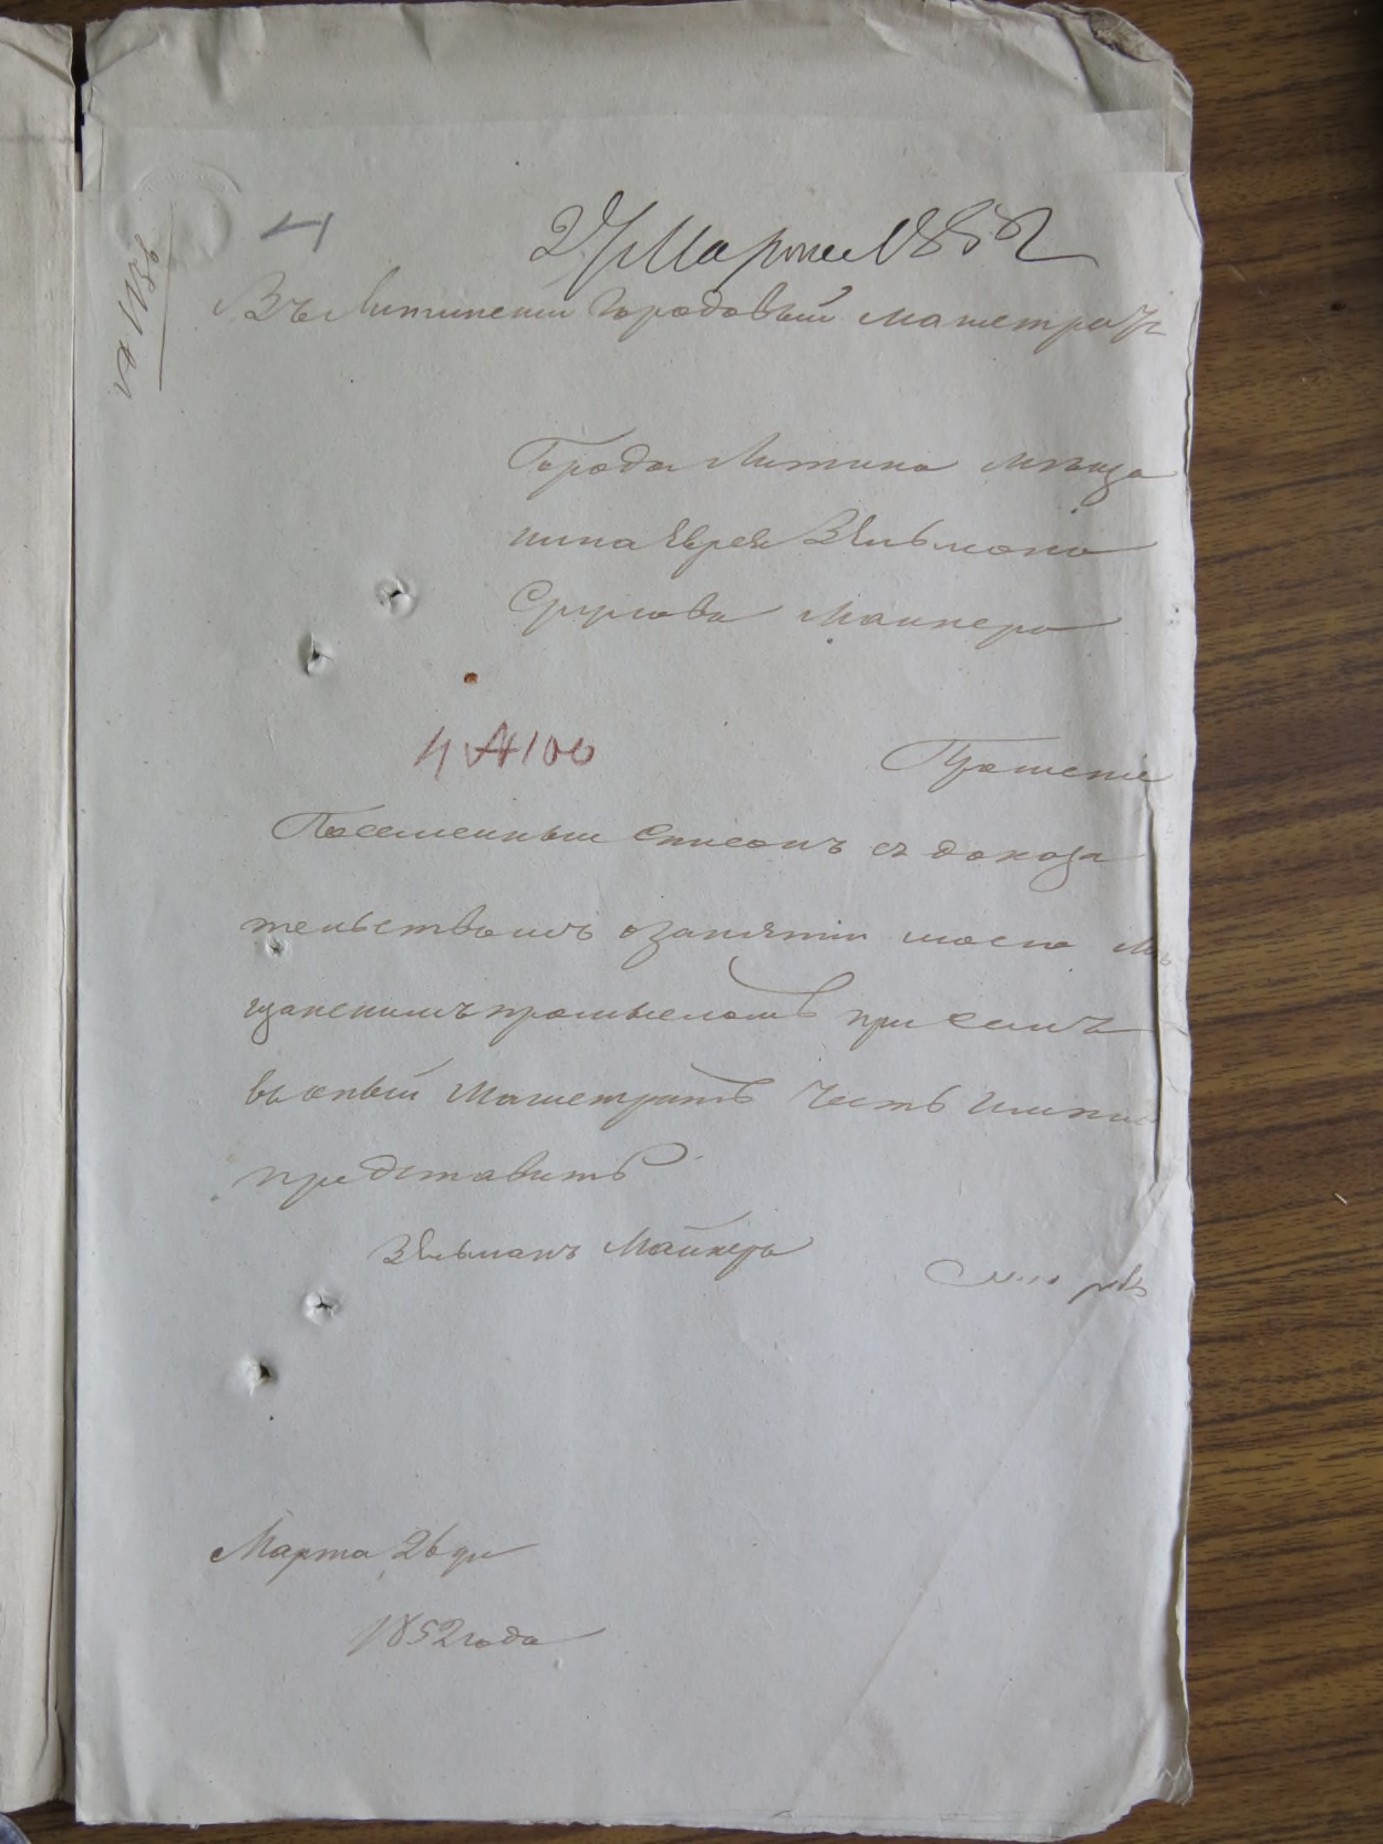 4
27 Марта 1852
№ 1198
Въ Литинскій Городовый Магистратъ
Города Литина мѣща
нина Еврея Зельмана
Сруłева Майнера
4 № 100
Прошеніе
Посемейный списокъ съ доказа
тельствомъ о занятіи моемъ мѣ
щанскимъ промысломъ при семъ
въ оный Магистратъ честь имѣю
представить
Зельманъ Майнеръ
Марта 26 дня
1852 года